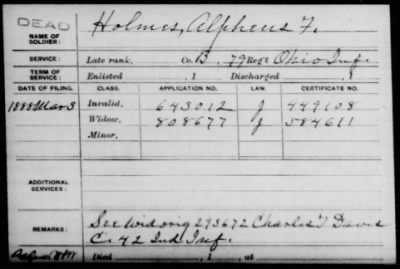 DEAD
NAME OF SOLDIER: Holmes, Alpheus F.
SERVICE: Late rank, Co. B. 79 Regt Ohio Inf.
TERM OF SERVICE: Enlisted , 1 Discharged , 1
DATE OF FILING. CLASS. APPLICATION NO. LAW. CERTIFICATE NO.
1888 Mar 3 Invalid, 643012 J 449108
Widow, 808677 J 584611
Minor,
ADDITIONAL SERVICES:
REMARKS: See Wid orig 293672 Charles T Davis
C. 42 Ind Inf.
Died , 1 , at